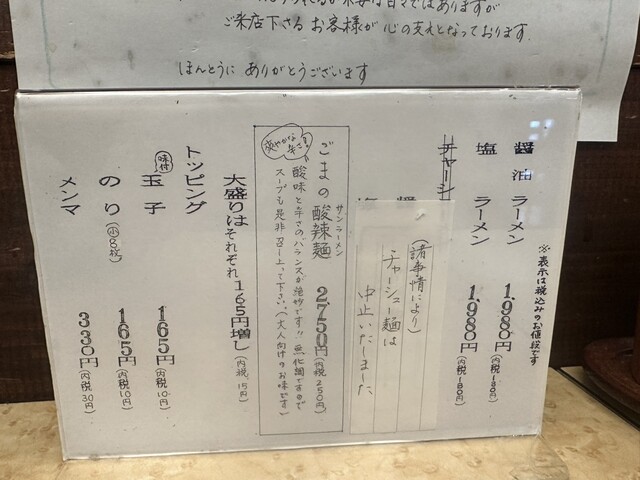 ご来店下さる お客様が 心の支えとなっております。
ほんとうに ありがとうございます
※表示は税込みのお値段です
醤油 ラーメン 1,980円(内税180円)
塩 ラーメン 1,980円(内税180円)
チャーシ
醤
塩
(諸事情により)
チャーシュー麺は
中止いたしました
サンラーメン
ごまの酸辣麺 2750円(内税250円)
爽やかな辛さ!
酸味と辛さのバランスが絶妙です!! 無化調ですので
スープも是非召し上って下さい。(大人向けのお味です)
大盛りはそれぞれ165円増し(内税15円)
トッピング
味付玉子 165円(内税10円)
のり(小8枚) 165円(内税10円)
メンマ 330円(内税30円)